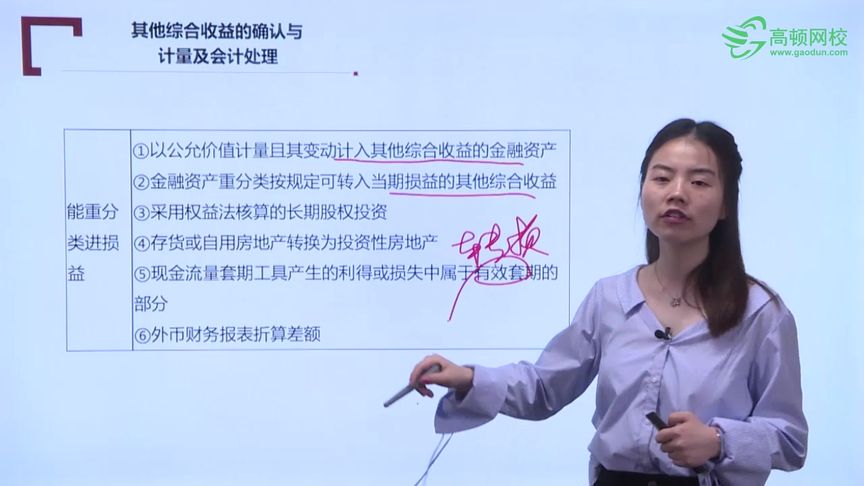 其他综合收益的确认与
计量及会计处理
高顿网校
www.gaodun.com
能重分
类进损
益
①以公允价值计量且其变动计入其他综合收益的金融资产
②金融资产重分类按规定可转入当期损益的其他综合收益
③采用权益法核算的长期股权投资
④存货或自用房地产转换为投资性房地产
⑤现金流量套期工具产生的利得或损失中属于有效套期的
部分
⑥外币财务报表折算差额